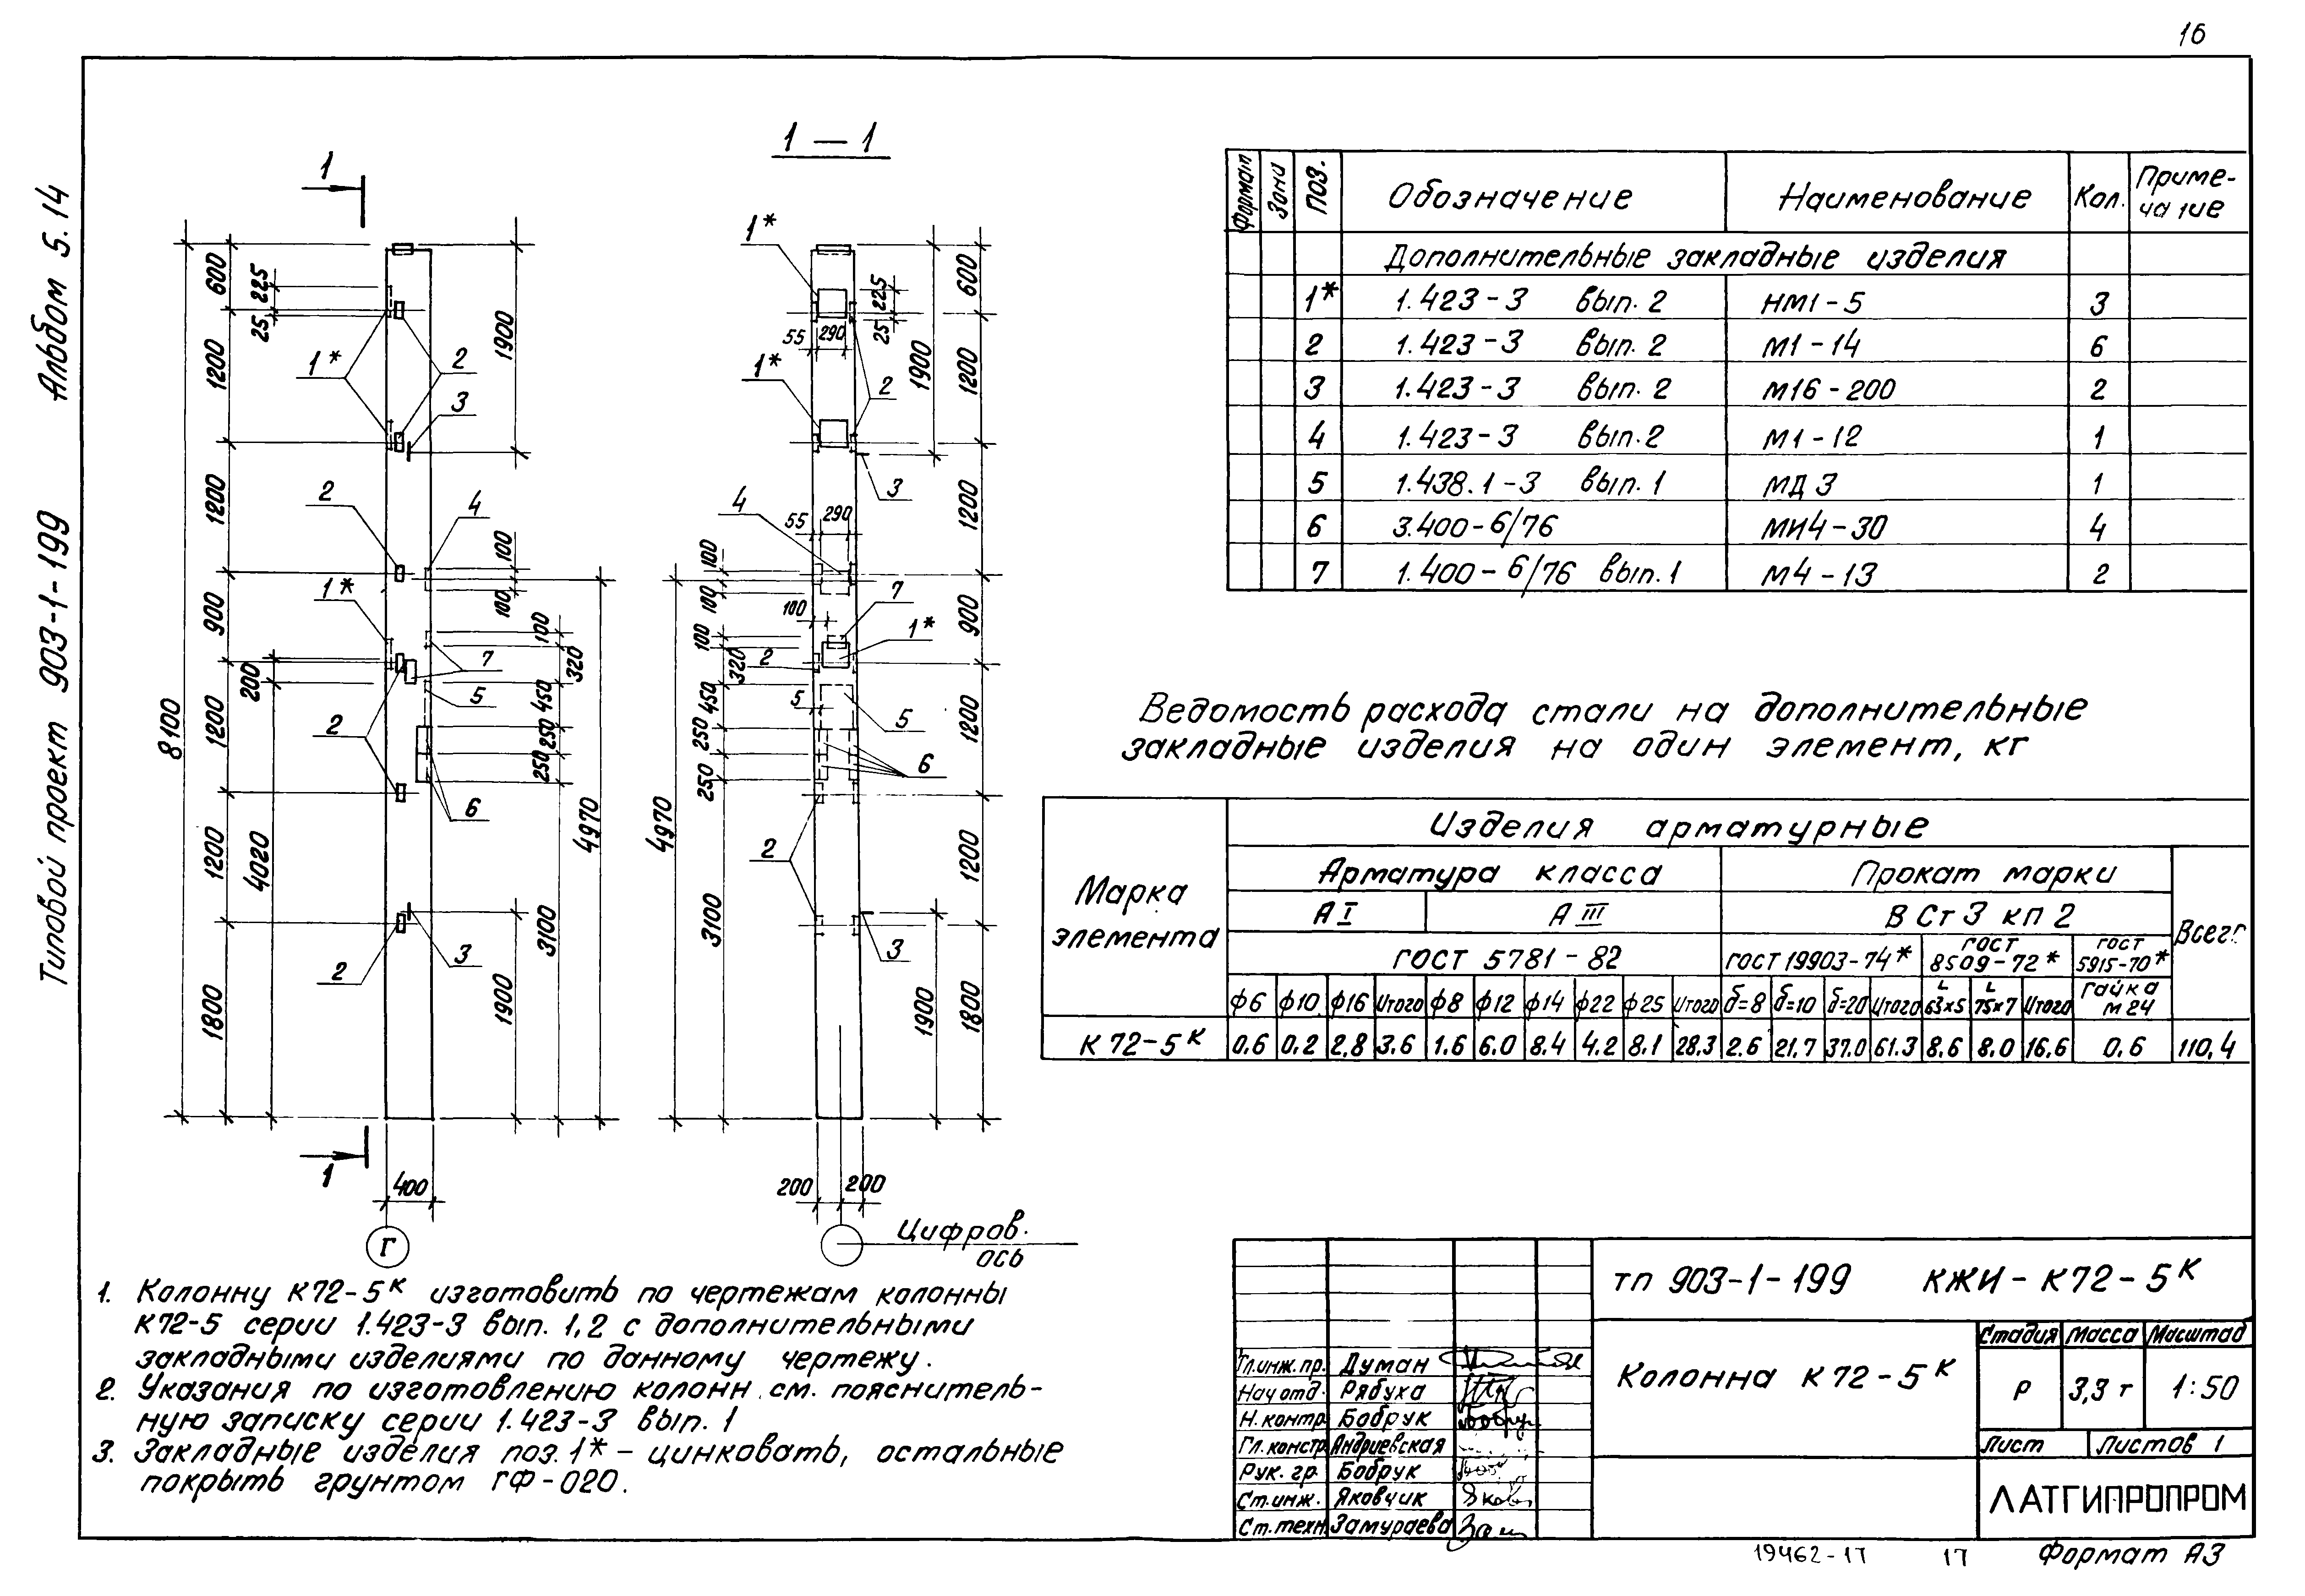 16
Альбом 5.14
Типовой проект 903-1-199
1
1 — 1
600
225
25
1200
1200
900
200
1200
8100
4020
1200
1800
1*
2
3
1900
2
4
100
100
1*
7
100
320
5
450
250
250
2
6
4970
3100
2
3
1900
1
400
Г
1*
225
25
600
55
290
1*
2
1900
1200
3
4
55
290
1200
100
100
100
7
1*
900
100
320
2
450
5
5
250
250
6
1200
4970
3100
2
1200
3
1900
1800
200
200
Цифров.
ось
Формат
Зона
Поз.
Обозначение
Наименование
Кол.
Приме-
чание
Дополнительные закладные изделия
1* 1.423-3 вып. 2 НМ1-5 3
2 1.423-3 вып. 2 М1-14 6
3 1.423-3 вып. 2 М16-200 2
4 1.423-3 вып. 2 М1-12 1
5 1.438.1-3 вып. 1 МД 3 1
6 3.400-6/76 МИ4-30 4
7 1.400-6/76 вып. 1 М4-13 2
Ведомость расхода стали на дополнительные
закладные изделия на один элемент, кг
Марка
элемента
Изделия арматурные
Арматура класса
Прокат марки
А I
А III
В Ст 3 кп 2
Всего
ГОСТ 5781-82
ГОСТ 19903-74*
ГОСТ
8509-72*
ГОСТ
5915-70*
ф6 ф10 ф16 Итого ф8 ф12 ф14 ф22 ф25 Итого δ=8 δ=10 δ=20 Итого L 63х5 L 75х7 Итого Гайка М24
К 72-5К 0.6 0.2 2.8 3.6 1.6 6.0 8.4 4.2 8.1 28.3 2.6 21.7 37.0 61.3 8.6 8.0 16.6 0.6 110,4
1. Колонну К72-5К изготовить по чертежам колонны
К72-5 серии 1.423-3 вып. 1,2 с дополнительными
закладными изделиями по данному чертежу.
2. Указания по изготовлению колонн см. пояснитель-
ную записку серии 1.423-3 вып. 1
3. Закладные изделия поз. 1* - цинковать, остальные
покрыть грунтом ГФ-020.
ТП 903-1-199 КЖИ-К72-5К
Колонна К 72-5К
Стадия Масса Масштаб
Р 3,3 т 1:50
Лист Листов 1
ЛАТГИПРОПРОМ
Гл.инж.пр. Думан
Нач.отд. Рябуха
Н.контр. Бобрук
Гл.констр. Андриевская
Рук. гр. Бобрук
Ст.инж. Яковчик
Ст.техн. Замураева
19462-17 17 Формат А3